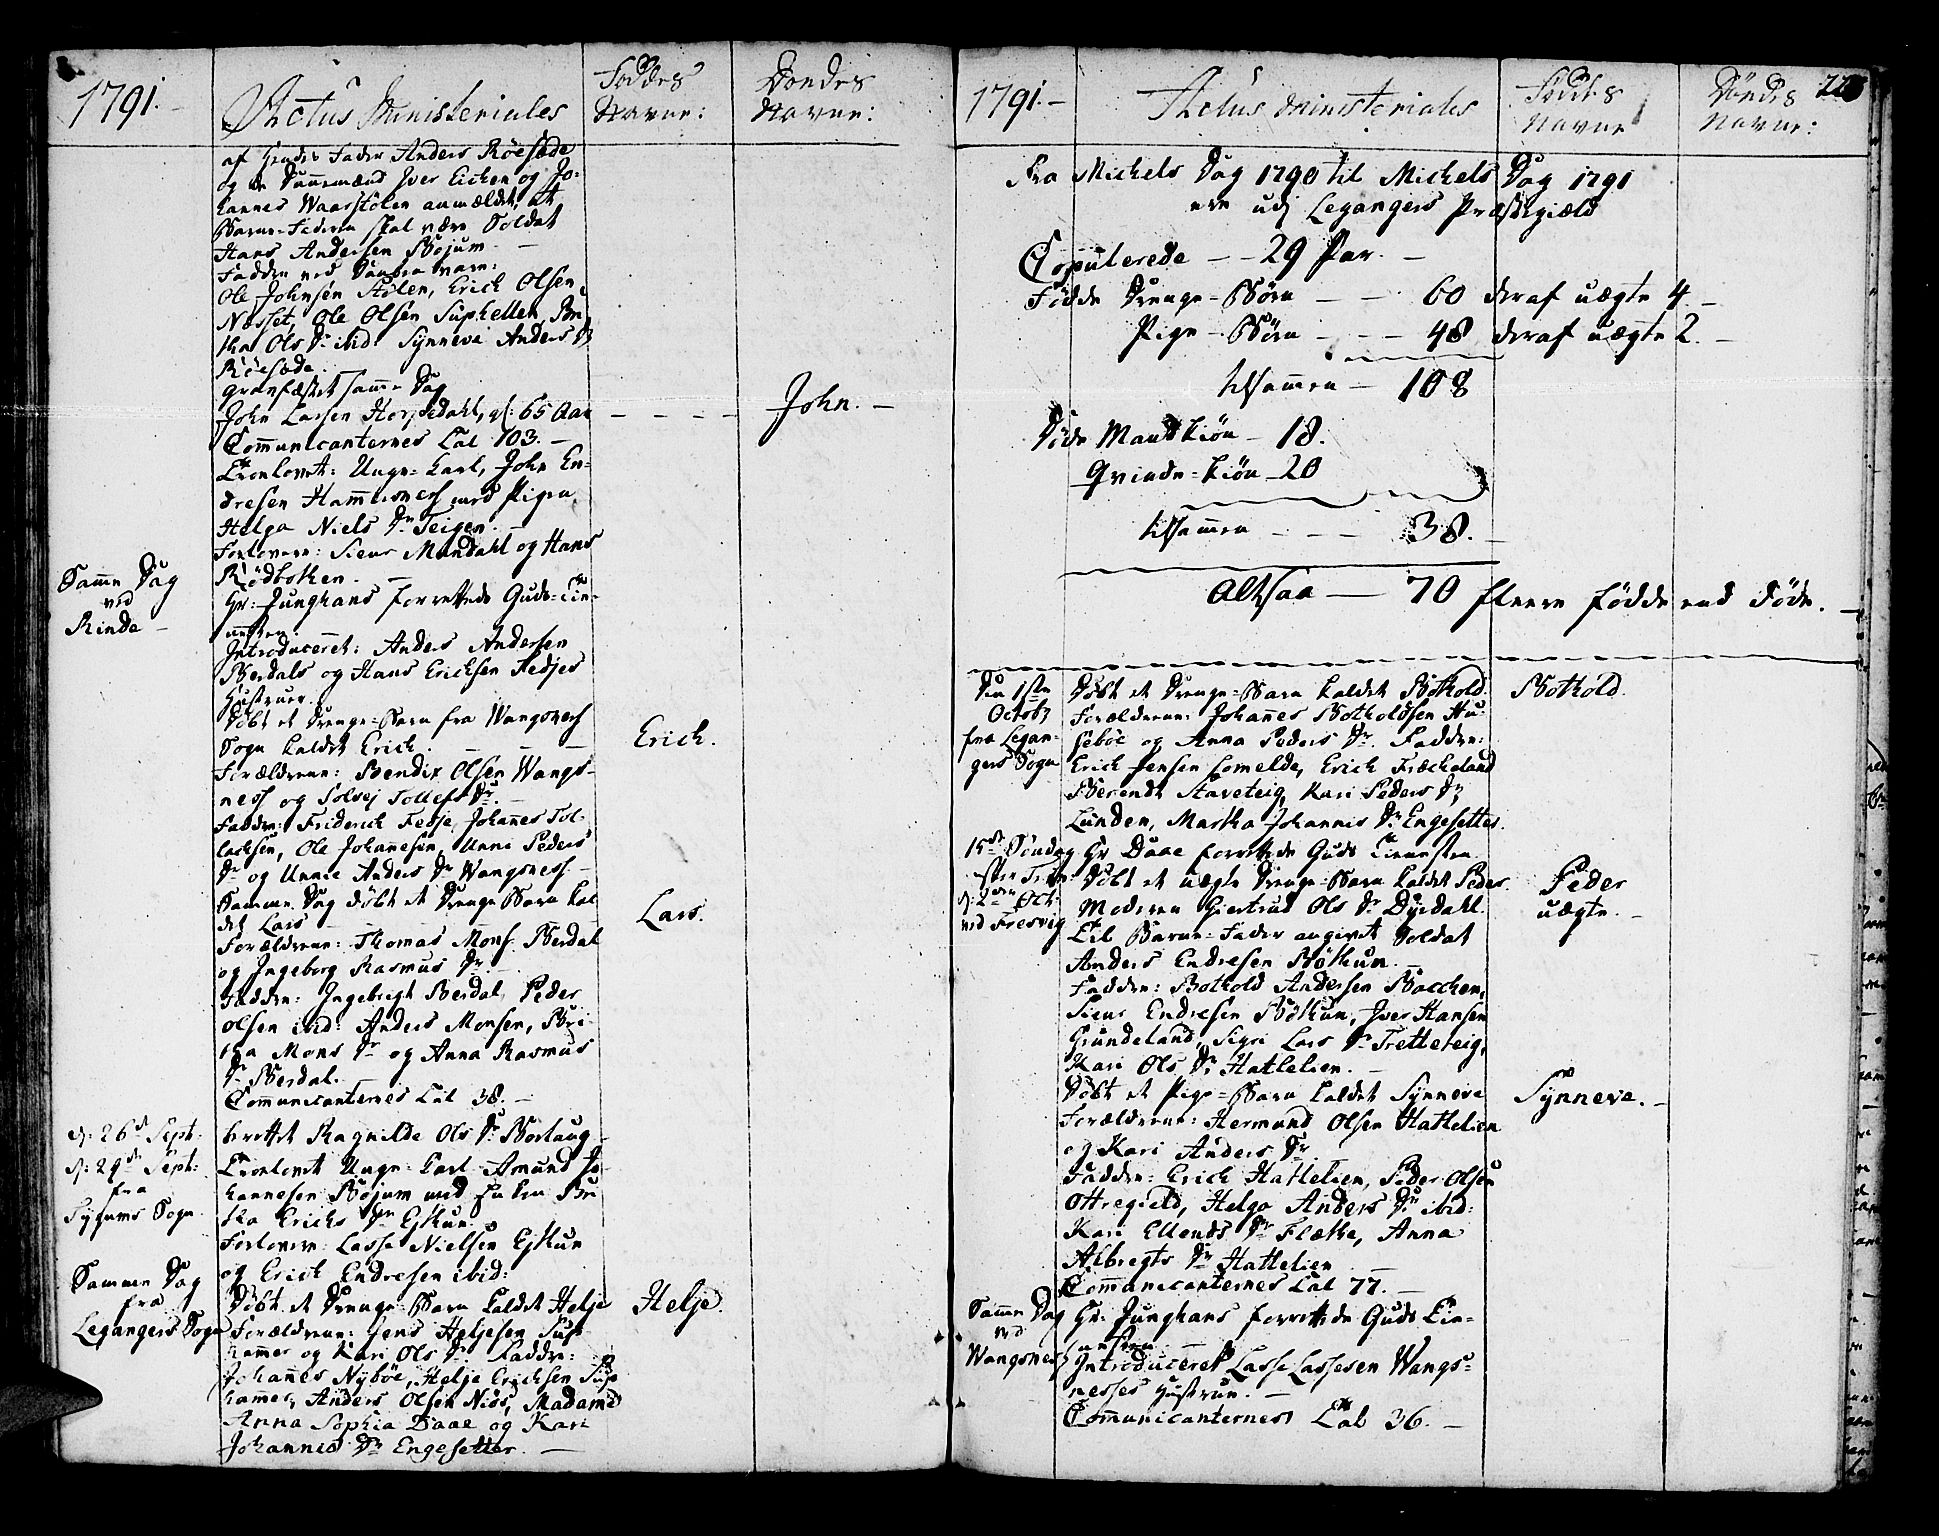 1791.
Actus Ministeriales
Föddes Navne:
Dondes Navne:
af hendes Fader Anders Röesæde
og de Dannemænd Iver Eichen og Jo-
hannes Waarstölen anmældet, at
Barne-Faderen skal være Soldat
Hans Andersen Böjum.
Fadder ved Daaben vare:
Ole Johnsen Stölen, Erich Olsen
Næsset, Ole Olsen Suphellen, Bri
tha Ols Dr ibid: Synneve Anders Dr
Röesæde.
Gravfæstet samme Dag
John Lassen Horpedahl, gl: 65 Aar - - - - John. -
Communicanternes Tal 103. -
Trolovet: Unge-Karl, John En-
dresen Hammersness med Pigen
Helga Niels Dr Teigen.
Forlovere: Siur Mundahl og Hans
Rödbotten.
Samme Dag
ved
Rinde -
Hr: Junghans forrettede Guds-Tie-
nesten.
Introduceret: Anders Andersen
Berdals og Hans Erichsen Fedjes
Hustruer.
Döbt et Drenge-Barn fra Wangsness
Sogn kaldet Erich. - - - Erich.
Forældrene: Bendix Olsen Wangs-
ness og Solvej Tollefs Dr. -
Faddere: Friderich Fedje, Johannes Tol-
lachsen, Ole Johanesen, Unni Peders
Dr og Unnie Anders Dr Wangsness. -
Samme Dag döbt et Drenge-Barn kal
det Lars - Lars.
Forældrene: Thomas Mons: Berdal
og Ingeborg Rasmus Dr. -
Faddere: Ingebrigt Berdal, Peder
Olsen ibid: Anders Monsen, Bri-
tha Mons Dr og Anna Rasmus
Dr Berdal.
Communicanternes Tal 38. -
d: 26de Sept: berettet Ragnilde Ols Dr Borlaug
d: 29de Sept: fra
Sygums Sogn
Trolovet Unge Karl Amund Jo
hannesen Böjum med Enken Bri
tha Erichs Dr Ejthun.
Forlovere: Lasse Nielsen Ejthun
og Erich Endresen ibid:
Sammen Dag
fra
Legangers Sogn
Döbt et Drenge-Barn kaldet Helje Helje.
Forældrene: Jens Heljesen Sup
hammer og Kari Ols Dr. Faddere:
Johannes Nyböe, Helje Erichsen Sup
hammer, Anders Olsen Niss, Madame
Anna Sophia Daae og Kari
Johannes Dr Engesetter. -
1791. -
Actus Ministeriales
Föddes Navne
Döndes Navne:
Fra Michels Dag 1790 til Michels Dag 1791
ere udj Legangers Præstegield
Copulerede - - 29 Par. -
Födde Drenge-Börn - - 60 deraf uægte 4. -
Pige-Börn - - - 48 deraf uægte 2. -
tilsammen - 108
Döde Mandkiön - 18.
Qvinde-kiön - 20
tilsammen - - - 38. -
Altsaa - 70 fleere födde end döde. -
Den 1ste
Octobr
fra Legan-
gers Sogn
Döbt et Drenge-Barn kaldet Bothold. Bothold.
Forældrene: Johannes Botholdsen Hu-
seböe og Anna Peders Dr. Faddere:
Erich Jensen Lomelde, Erich Fræcheland
Berendt Aaveteig, Kari Peders Dr
Lunden, Martha Johannis Dr Engesetter.
15de Söndag
efter Trin:
d: 2den Oct:
ved Fresvig
Hr Daae forrettede Guds Tienesten
Döbt et uægte Drenge-Barn kaldet Peder. Peder
uægte. -
Moderen Giertrud Ols Dr Dyrdahl.
Til Barne-Fader angivet Soldat
Anders Endresen Böthun. -
Faddere: Bothold Andersen Bacchen,
Siur Endresen Böthun, Iver Hansen
Grundeland, Sigri Lars Dr Tretteteig,
Kari Ols Dr Hattelien. -
Döbt et Pige-Barn kaldet Synneve Synneve. -
Forældrene: Hermund Olsen Hattelien
og Kari Anders Dr
Faddere: Erich Hattelien, Peder Olsen
Ottregield, Helga Anders Dr ibid:
Kari Ellends Dr Flæthe, Anna
Albregts Dr Hattelien
Communicanternes Tal 77. -
Samme Dag
ved
Wangsness
Hr: Junghans forrettede Guds Tie-
nesten
Introduceret Lasse Lassesen Wangs-
nesses Hustrue. -
Communicanternes Tal 36. -